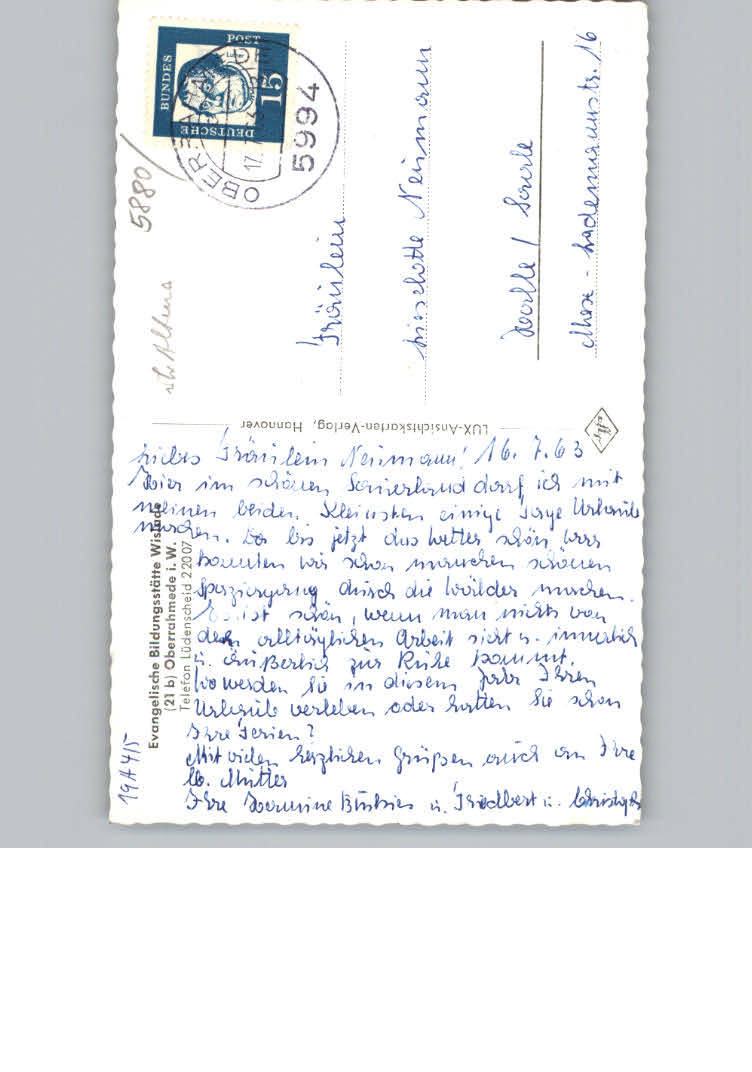 Liebes Fräulein Neumann! 16. 7. 63
Hier im schönen Sauerland darf ich mit
meinen beiden Kleinsten einige Tage Urlaub
machen. Da bis jetzt das Wetter schön war
konnten wir schon manchen schönen
Spaziergang durch die Wälder machen.
Es ist schön, wenn man nichts von
der alltäglichen Arbeit sieht u. innerlich
u. äußerlich zur Ruhe kommt.
Wo werden Sie in diesem Jahr Ihren
Urlaub verleben oder hatten Sie schon
Ihre Ferien?
Mit vielen herzlichen Grüßen auch an Ihre
lb. Mutter
Ihre Hermine u. Friedbert u.
Evangelische Bildungsstätte Wislade
(21 b) Oberrahmede i. W.
Telefon Lüdenscheid 22007
19A4/5
LUX-Ansichtskarten-Verlag, Hannover
5880/
Altena
DEUTSCHE
BUNDES
POST
15
OBERRAHMEDE
17. 7. 63
5994
Fräulein
Lieselotte Neumann
Halle / Saale
Max-Lademannstr. 16